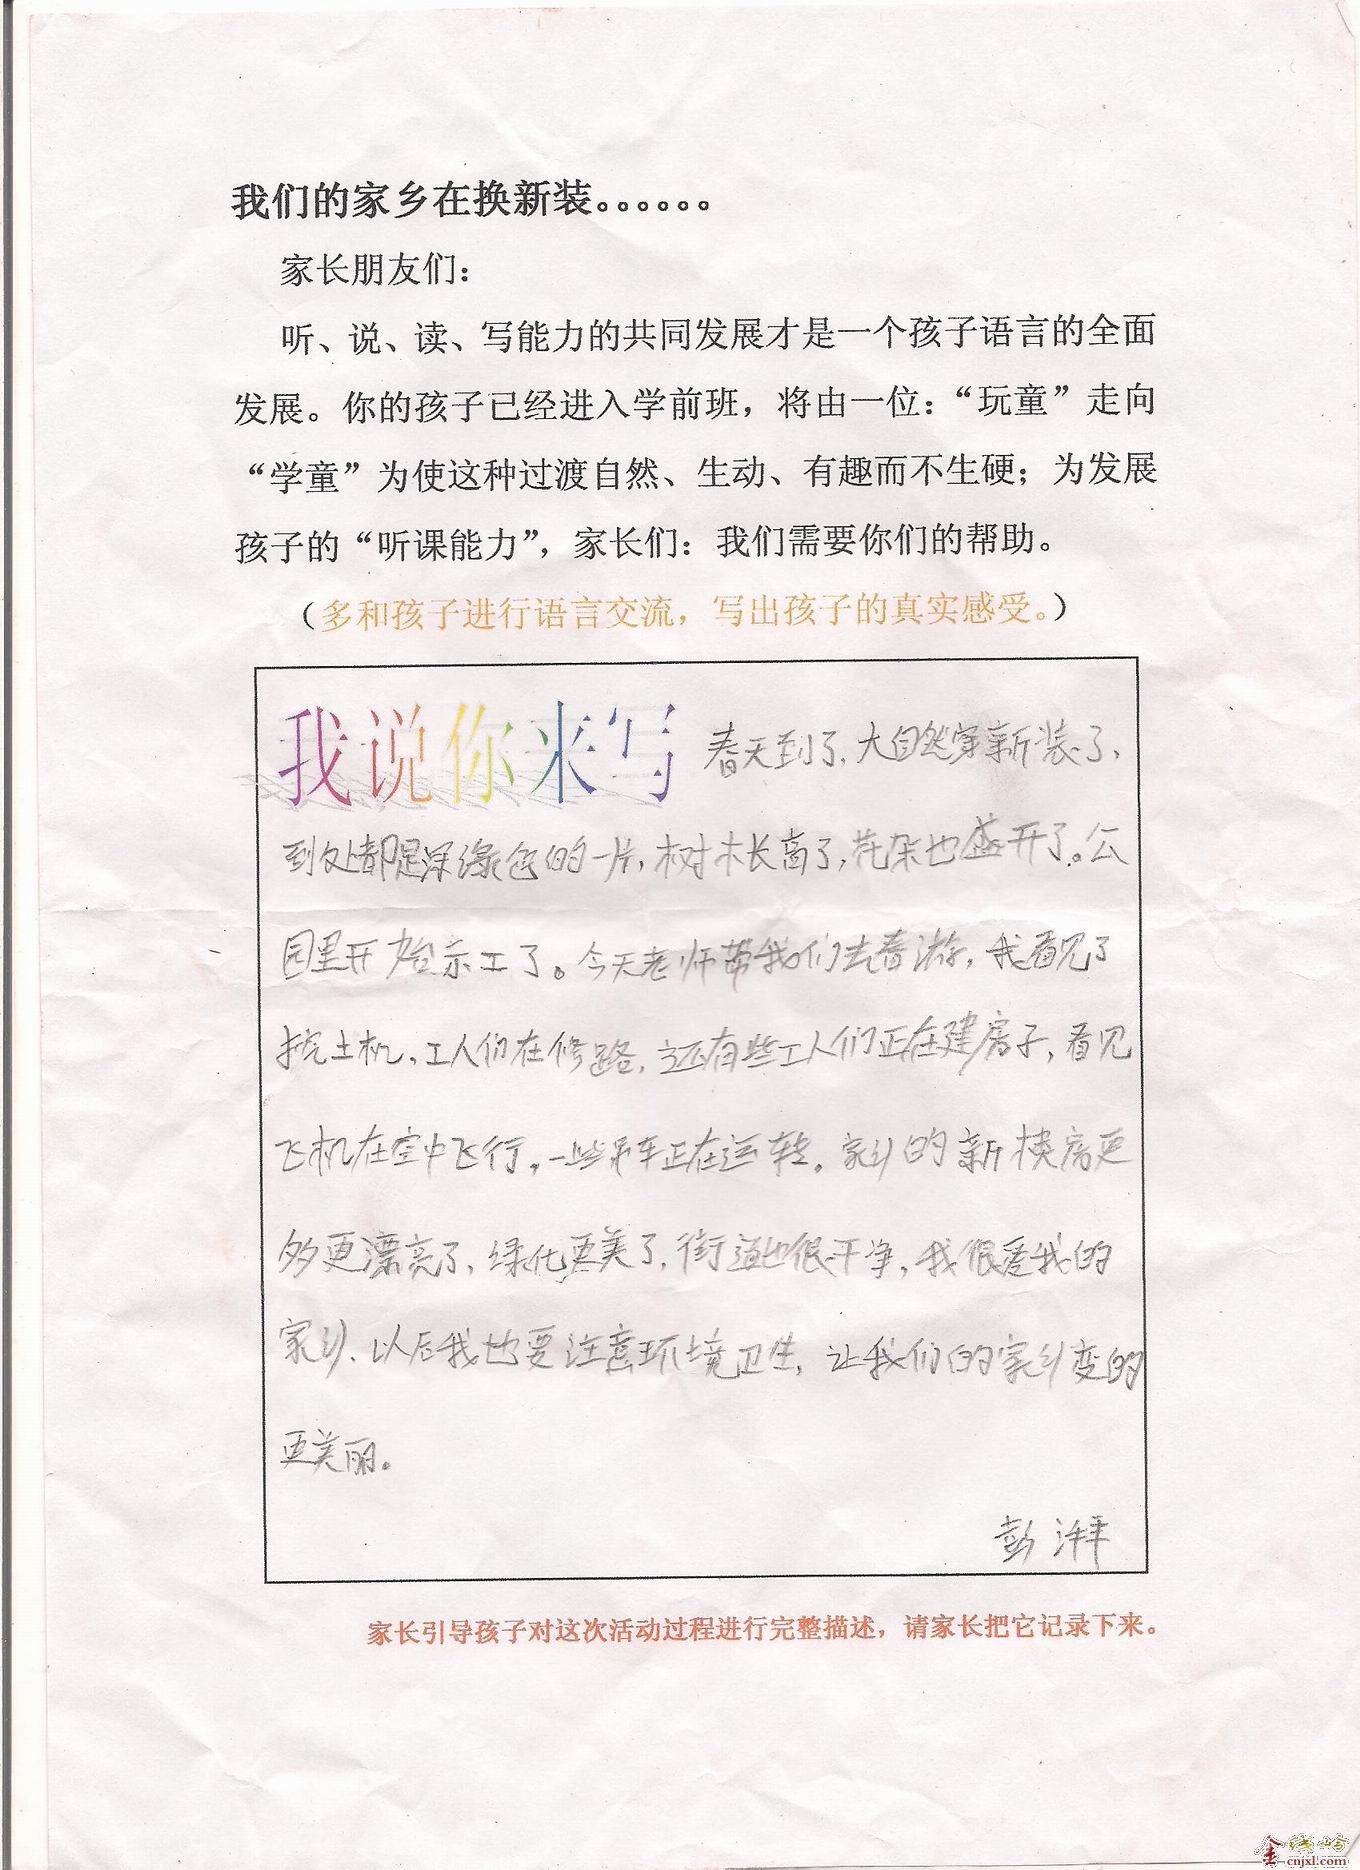 我们的家乡在换新装。。。。。。
家长朋友们：
听、说、读、写能力的共同发展才是一个孩子语言的全面
发展。你的孩子已经进入学前班，将由一位：“玩童”走向
“学童”为使这种过渡自然、生动、有趣而不生硬；为发展
孩子的“听课能力”，家长们：我们需要你们的帮助。
（多和孩子进行语言交流，写出孩子的真实感受。）
我说你来写 春天到了，大自然穿新装了，
到处都是深绿色的一片，树木长高了，花朵也盛开了。公
园里开始示工了。今天老师带我们去春游，我看见了
挖土机，工人们在修路，还有些工人们正在建房子，看见
飞机在空中飞行，一些吊车正在运转。家乡的新楼房更
多更漂亮了，绿化更美了，街道也很干净，我很爱我的
家乡，以后我也要注意环境卫生，让我们的家乡变的
更美丽。
彭湃
家长引导孩子对这次活动过程进行完整描述，请家长把它记录下来。
cnjxl.com